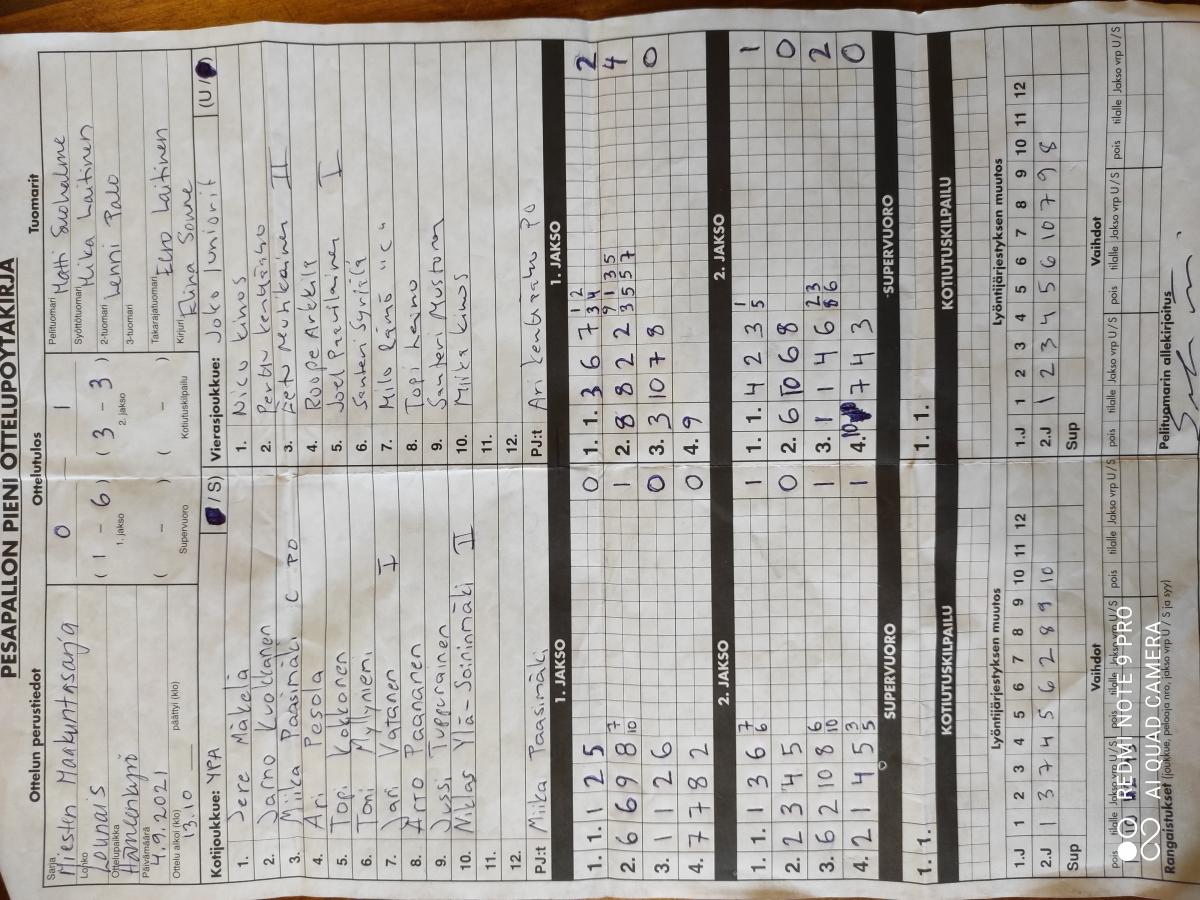 PESÄPALLON PIENI OTTELUPÖYTÄKIRJA
Ottelun perustiedot
Sarja
Miesten Maakuntasarja
Lohko
Lounais
Ottelupaikka
Hämeenkyrö
Päivämäärä
4.9.2021
Ottelu alkoi (klo) päättyi (klo)
13.10
Ottelutulos
0 – 1
( 1 – 6 ) ( 3 – 3 )
1. jakso 2. jakso
( – ) ( – )
Supervuoro Kotiutuskilpailu
Tuomarit
Pelituomari Matti Suohalme
Syöttötuomari Mika Laitinen
2-tuomari Lenni Palo
3-tuomari
Takarajatuomari Eero Laitinen
Kirjuri Elina Sonne
Kotijoukkue: YPA / S)
1. Jere Mäkelä
2. Jarno Kuokkanen
3. Miika Paasimäki C PO
4. Ari Pesola
5. Topi Kokkonen
6. Toni Myllyniemi
7. Jari Vatanen I
8. Arto Paananen
9. Jussi Tuppurainen
10. Niklas Ylä-Soininmäki II
11.
12.
PJ:t Miika Paasimäki
Vierasjoukkue: Joko Juniorit (U /
1. Nico Kinos
2. Perttu Kentjääho
3. Eetu II
4. Roope Arkkila
5. Joel Paavilainen I
6. Santeri Syrjälä
7. Milo Rämö "C"
8. Topi
9. Santeri Mustonen
10. Miika Kinos
11.
12.
PJ:t Ari PO
1. JAKSO
1. 1. 1 2 5 0
2. 6 6 9 8 7 10 1
3. 1 1 2 6 0
4. 7 7 8 2 0
1. JAKSO
1. 1. 3 6 7 1 3 2 4 2
2. 8 8 2 2 9 3 1 5 3 5 5 7 4
3. 3 10 7 8 0
4. 9
2. JAKSO
1. 1. 1 3 6 7 6 1
2. 2 3 4 5 0
3. 6 2 10 8 6 10 1
4. 2 1 4 5 3 5 1
2. JAKSO
1. 1. 4 2 3 1 5 1
2. 6 10 6 8 0
3. 1 1 4 6 2 8 3 6 2
4. 10 7 4 3 0
SUPERVUORO
1. 1.
SUPERVUORO
1. 1.
KOTIUTUSKILPAILU
KOTIUTUSKILPAILU
Lyöntijärjestyksen muutos
1.J 1 2 3 4 5 6 7 8 9 10 11 12
2.J 1 3 7 4 5 6 2 8 9 10
Sup
Lyöntijärjestyksen muutos
1.J 1 2 3 4 5 6 7 8 9 10 11 12
2.J 1 2 3 4 5 6 10 7 9 8
Sup
Vaihdot
pois tilalle Jakso vrp U/S pois tilalle Jakso vrp U/S pois tilalle Jakso vrp U/S
Vaihdot
pois tilalle Jakso vrp U/S pois tilalle Jakso vrp U/S pois tilalle Jakso vrp U/S
Rangaistukset (joukkue, pelaaja nro, jakso vrp U / S ja syy)
Pelituomarin allekirjoitus
REDMI NOTE 9 PRO
AI QUAD CAMERA